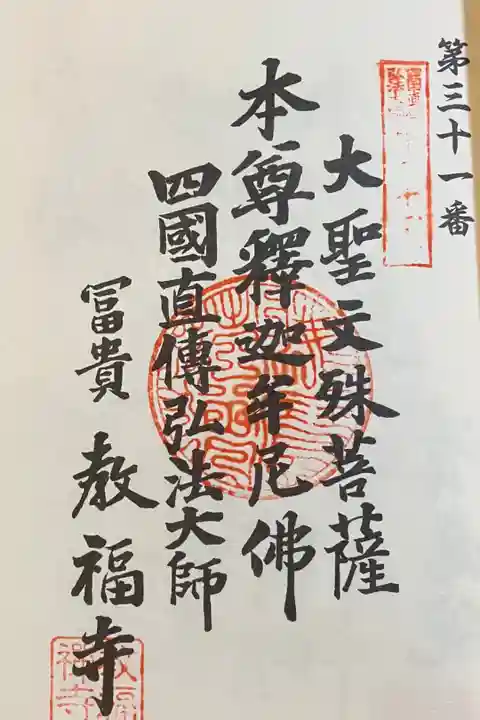 第三十一番
大聖文殊菩薩
本尊釋迦牟尼佛
四國直傳弘法大師
冨貴
教福寺